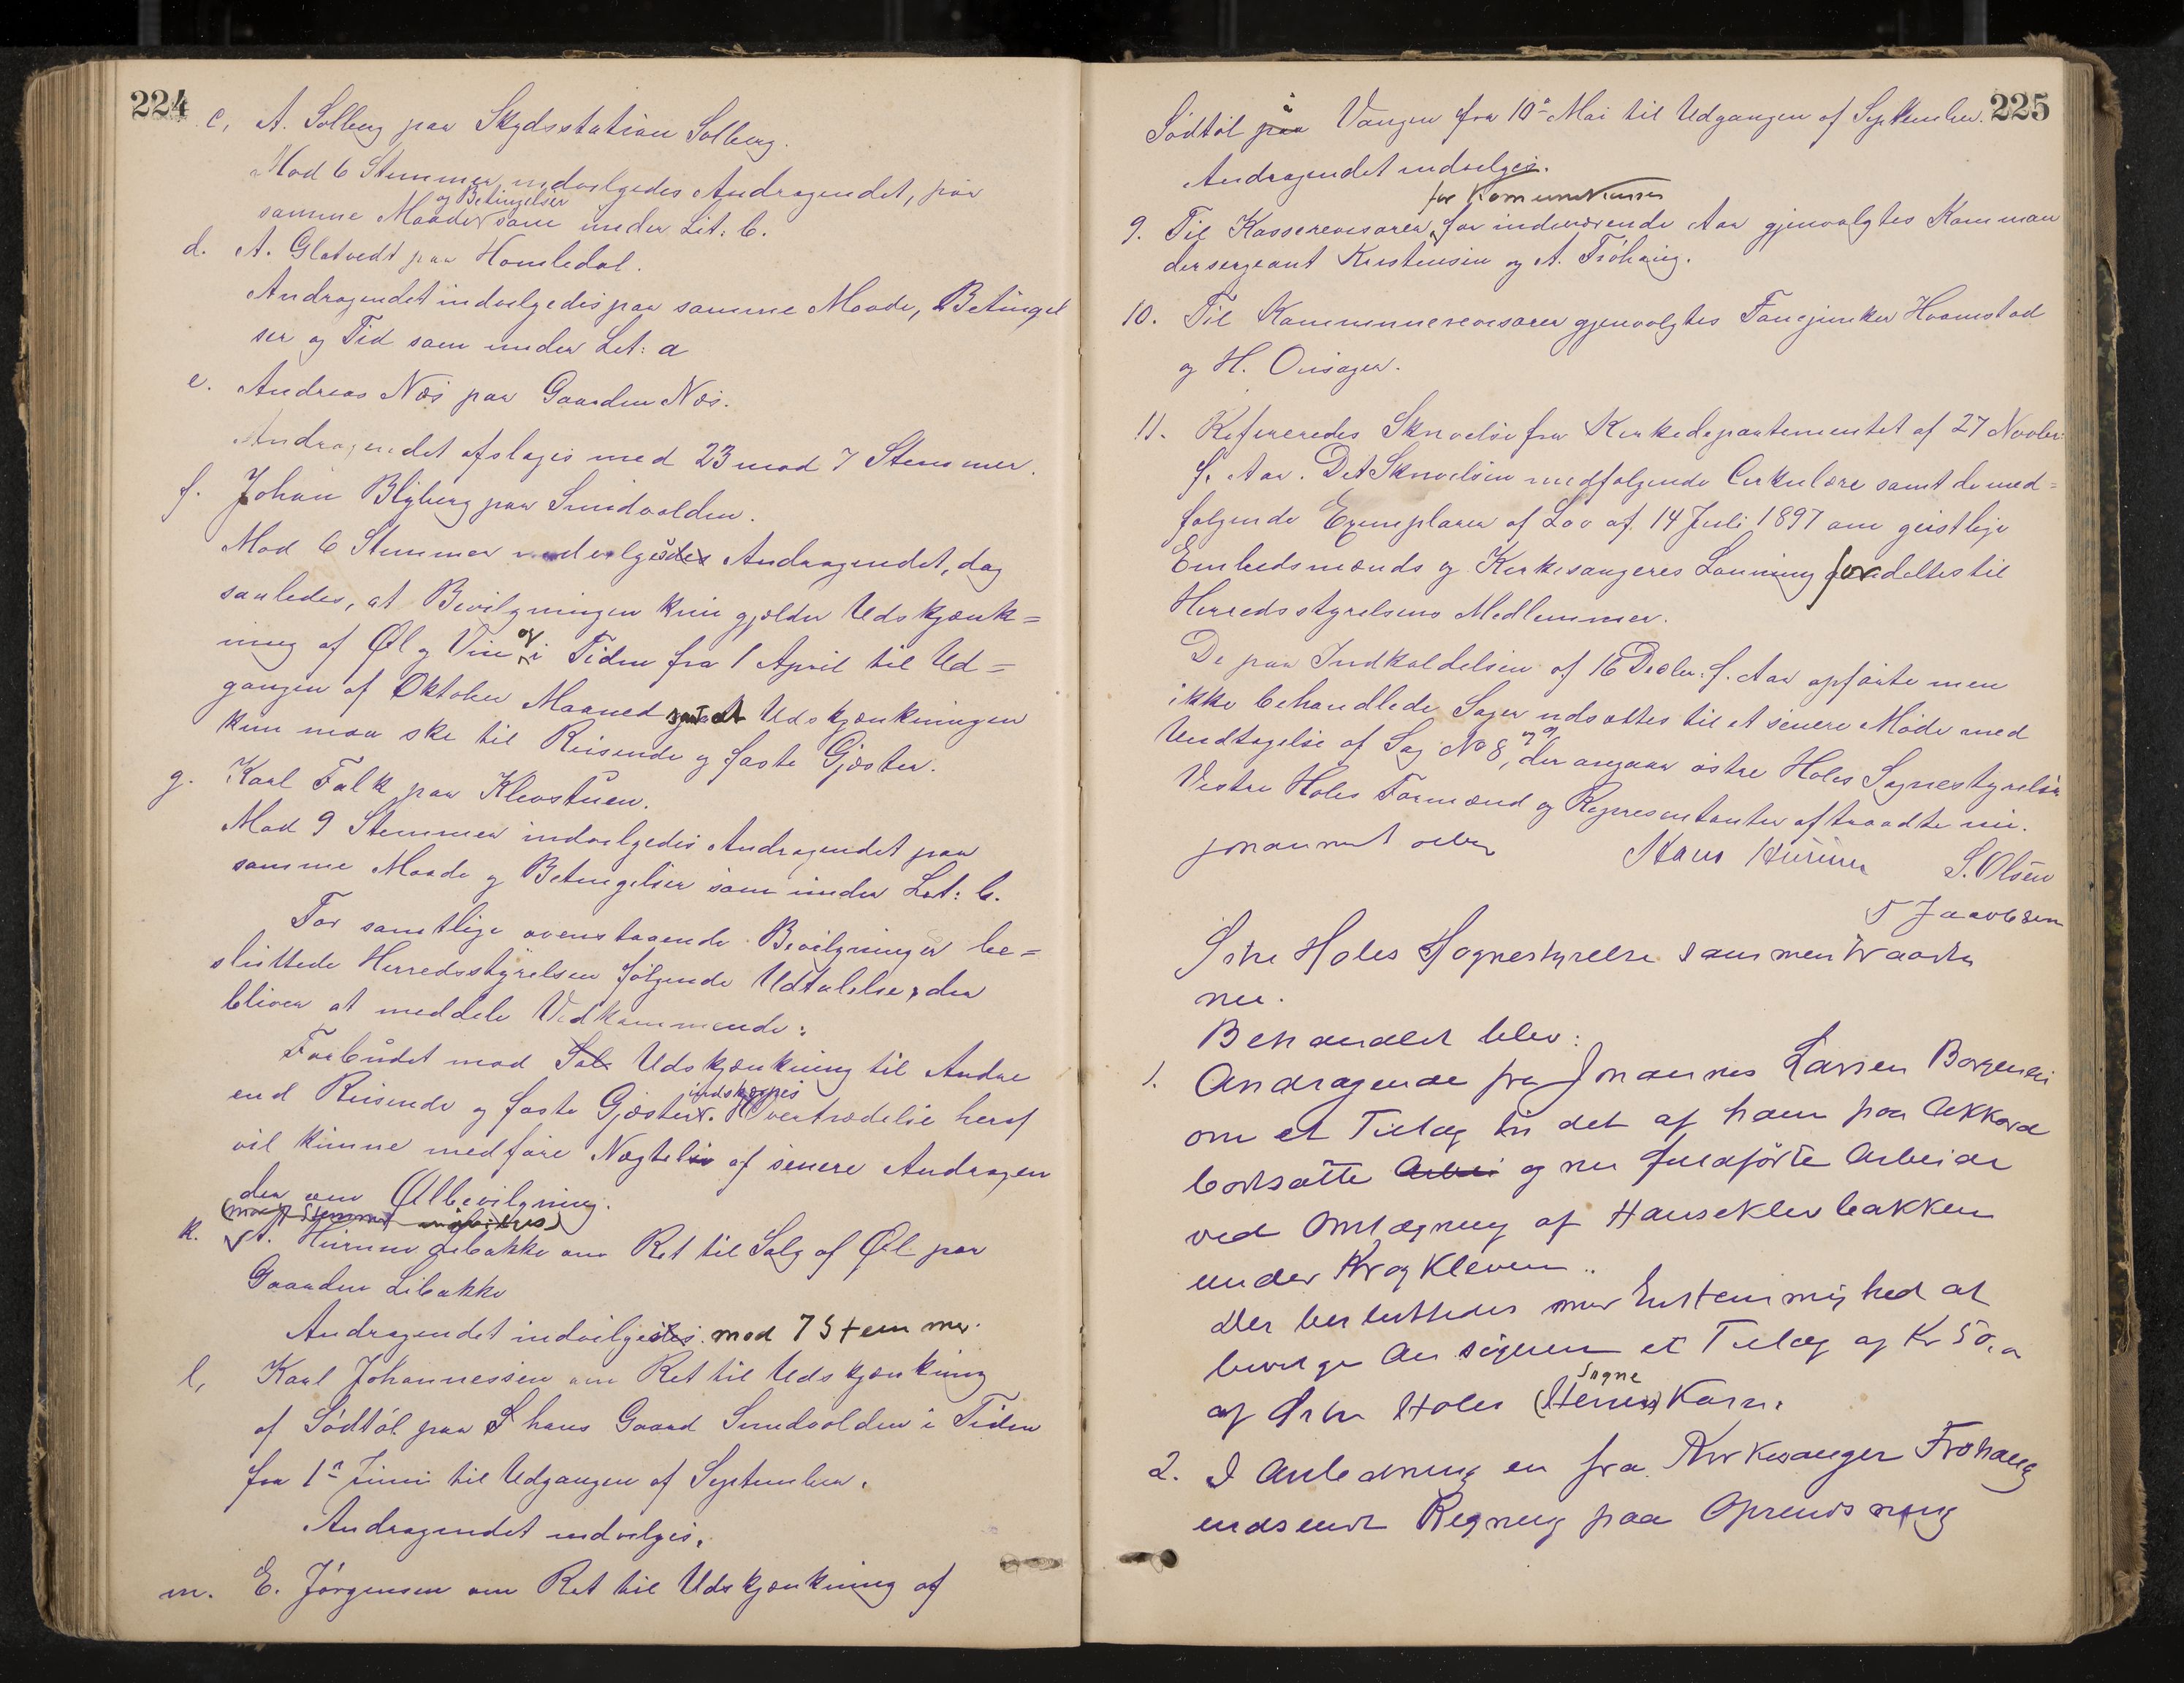 224
c, A. Solberg paa Skydsstation Solberg.
Mod 6 Stemmer indvilgedes Andragendet, paa
og Betingelser
samme Maade som under Lit: b.
d. A. Glatvedt paa Homledal.
Andragendet indvilgedes paa samme Maade, Betingel
ser og Tid som under Lit: a
e. Andreas Næs paa Gaarden Næs.
Andragendet afslages med 23 mod 7 Stemmer.
f. Johan Blyberg paa Sundvolden.
Mod 6 Stemmer indvilgedes Andragendet, dog
saaledes, at Bevilgningen kun gjælder Udskjænk=
ning af Øl og Vin og i Tiden fra 1 April til Ud=
gangen af Oktober Maaned samt at Udskjænkningen
kun maa ske til Reisende og faste Gjæster.
g. Karl Falk paa Klevstuen.
Mod 9 Stemmer indvilgedes Andragendet paa
samme Maade og Betingelser som under Lit: b.
For samtlige ovenstaaende Bevilgninger be=
sluttede Herredsstyrelsen følgende Udtalelse, der
bliver at meddele Vedkommende:
Forbudet mod Salg Udskjænkning til Andre
indskjærpes
end Reisende og faste Gjæster. Overtrædelse heraf
vil kunne medføre Nægtelse af senere Andragen
der om Ølbevilgning.
k. A. Hurum Libakke om Ret til Salg af Øl paa
Gaarden Libakke
Andragendet indvilges mod 7 Stemmer.
l, Karl Johannessen om Ret til Udskjænkning
af Sødtøl paa S hans Gaard Sundvolden i Tiden
fra 1ste Juni til Udgangen af September.
Andragendet indvilges.
m. E. Jørgensen om Ret til Udskjænkning af
225
Sødtøl paa i Vangen fra 10de Mai til Udgangen af September.
Andragendet indvilges.
for Kommunekassen
9. Til Kasserevisorer for indeværende Aar gjenvalgtes Komman
dersergeant Kristensen og A. Frøhaug.
10. Til Kommunerevisorer gjenvalgtes Fanejunker Haamstad
og H. Onsager.
11. Refereredes Skrivelse fra Kirkedepartementet af 27 Novbr:
f. Aar. Det Skrivelsen medfølgende Cirkulære samt de med=
følgende Exemplarer af Lov af 14 Juli 1897 om geistlige
Embedsmænds og Kirkesangeres Lønning fordeltes til
Herredsstyrelsens Medlemmer.
De paa Indkaldelsen af 16 Decbr. f. Aar opførte men
ikke behandlede Sager udsattes til et senere Møde med
og 9
Undtagelse af Sag No 8, der angaar østre Holes Sognestyrelse
Vestre Holes Formænd og Repræsentanter aftraadte nu.
Hans Hurum S. Olsen
T Jacobsen
Østre Holes Sognestyrelse sammentraadte
nu.
Behandlet blev:
1. Andragende fra Johannes Larsen Borgenei
om et Tillæg til det af ham paa Akkord
bortsatte Arbei og nu fuldførte Arbeide
ved Omlægning af Hansekleivbakken
under Krogkleven..
Der besluttedes med Enstemmighed at
bevilge Ansøgeren et Tillæg af Kr 50,00
Sogne
af Østre Holes (Herreds) Kasse.
2. I Anledning en fra Kirkesanger Frøhaug
indsendt Regning paa Oprensning